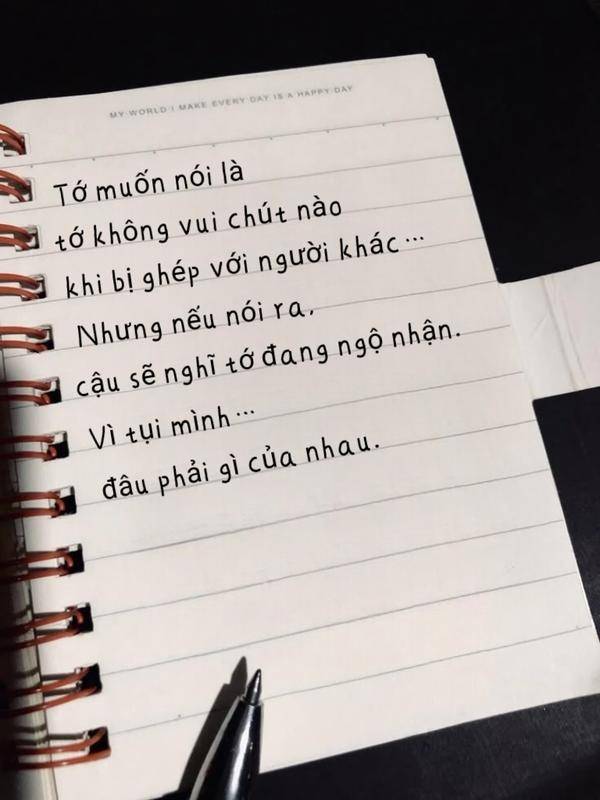 MY WORLD I MAKE EVERY DAY IS A HAPPY DAY
Tớ muốn nói là
tớ không vui chút nào
khi bị ghép với người khác...
Nhưng nếu nói ra,
cậu sẽ nghĩ tớ đang ngộ nhận.
Vì tụi mình...
đâu phải gì của nhau.